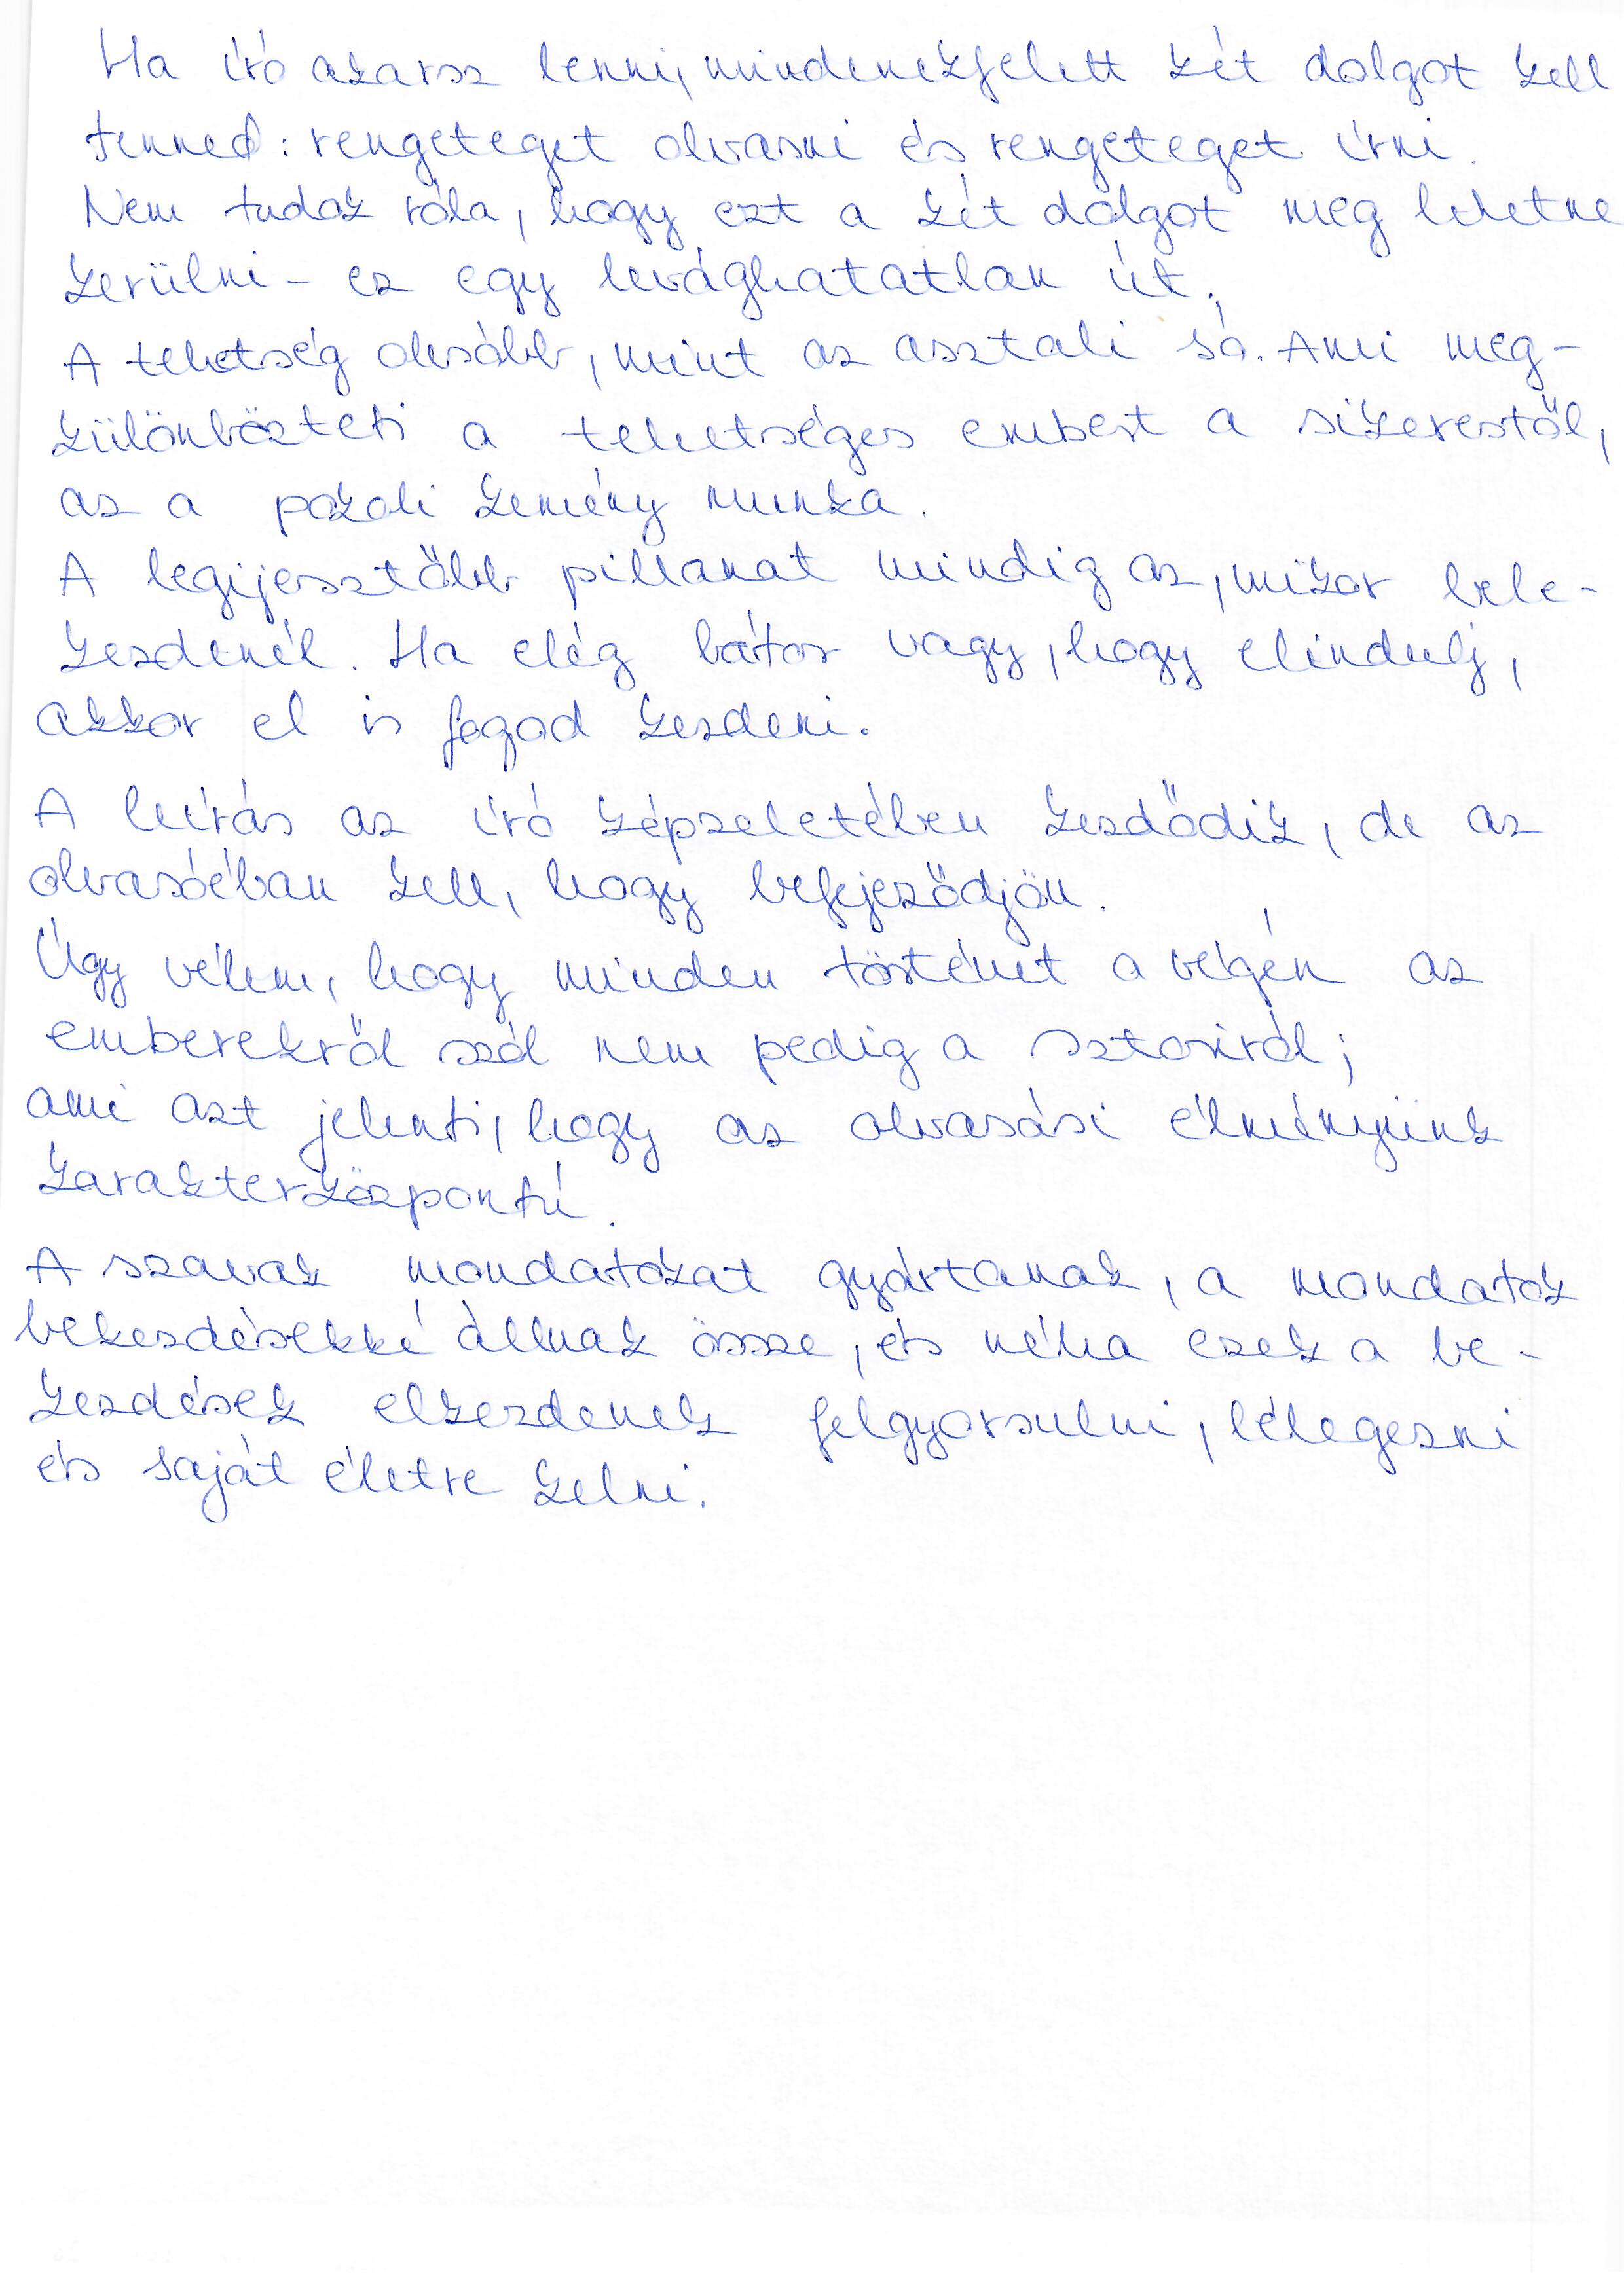 Ha író akarsz lenni, mindenekfelett két dolgot kell
tenned: rengeteget olvasni és rengeteget írni.
Nem tudok róla, hogy ezt a két dolgot meg lehetne
kerülni - ez egy levághatatlan út.
A tehetség olcsóbb, mint az asztali só. Ami meg-
különbözteti a tehetséges embert a sikerestől,
az a pokoli kemény munka.
A legijesztőbb pillanat mindig az, mikor bele-
kezdenél. Ha elég bátor vagy, hogy elindulj,
akkor el is fogod kezdeni.
A leírás az író képzeletében kezdődik, de az
olvasóéban kell, hogy befejeződjön.
Úgy vélem, hogy minden történet a végén az
emberekről szól nem pedig a sztoriról;
ami azt jelenti, hogy az olvasási élményünk
karakterközpontú.
A szavak mondatokat gyártanak, a mondatok
bekezdésekké állnak össze, és néha ezek a be-
kezdések elkezdenek felgyorsulni, lélegezni
és saját életre kelni.